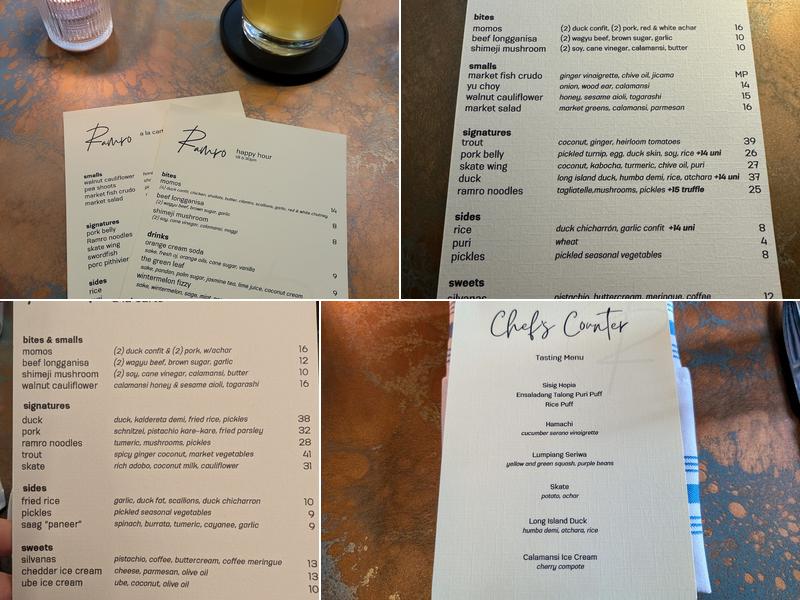 Ramro a la cart
smalls
walnut cauliflower
pea shoots
market fish crudo
market salad
signatures
pork belly
Ramro noodles
skate wing
swordfish
porc pithivier
sides
rice
Ramro happy hour
bites
momos 14
(2) duck confit, chicken, shallots, butter, cilantro, scallions, garlic, red & white chutney
beef longganisa 8
(2) wagyu beef, brown sugar, garlic
shimeji mushroom 8
(2) soy, cane vinegar, calamansi, maggi
drinks
orange cream soda
sake, fresh oj, orange oils, cane sugar, vanilla 9
the green leaf
sake, pandan, palm sugar, jasmine tea, lime juice, coconut cream 9
wintermelon fizzy
sake, wintermelon, sage, mint,
bites
momos (2) duck confit, (2) pork, red & white achar 16
beef longganisa (2) wagyu beef, brown sugar, garlic 10
shimeji mushroom (2) soy, cane vinegar, calamansi, butter 10
smalls
market fish crudo ginger vinaigrette, chive oil, jicama MP
yu choy onion, wood ear, calamansi 14
walnut cauliflower honey, sesame aioli, togarashi 15
market salad market greens, calamansi, parmesan 16
signatures
trout coconut, ginger, heirloom tomatoes 39
pork belly pickled turnip, egg, duck skin, soy, rice +14 uni 26
skate wing coconut, kabocha, turmeric, chive oil, puri 27
duck long island duck, humba demi, rice, atchara +14 uni 37
ramro noodles tagliatelle,mushrooms, pickles +15 truffle 25
sides
rice duck chicharrón, garlic confit +14 uni 8
puri wheat 4
pickles pickled seasonal vegetables 8
sweets
silvanas pistachio, buttercream, meringue, coffee 12
bites & smalls
momos (2) duck confit & (2) pork, w/achar 16
beef longganisa (2) wagyu beef, brown sugar, garlic 12
shimeji mushroom (2) soy, cane vinegar, calamansi, butter 10
walnut cauliflower calamansi honey & sesame aioli, togarashi 16
signatures
duck duck, kaldereta demi, fried rice, pickles 38
pork schnitzel, pistachio kare-kare, fried parsley 32
ramro noodles tumeric, mushrooms, pickles 28
trout spicy ginger coconut, market vegetables 41
skate rich adobo, coconut milk, cauliflower 31
sides
fried rice garlic, duck fat, scallions, duck chicharron 10
pickles pickled seasonal vegetables 9
saag "paneer" spinach, burrata, tumeric, cayanee, garlic 9
sweets
silvanas pistachio, coffee, buttercream, coffee meringue 13
cheddar ice cream cheese, parmesan, olive oil 13
ube ice cream ube, coconut, olive oil 10
Chef's Counter
Tasting Menu
Sisig Hopia
Ensaladang Talong Puri Puff
Rice Puff
Hamachi
cucumber serano vinaigrette
Lumpiang Seriwa
yellow and green squash, purple beans
Skate
potato, achar
Long Island Duck
humba demi, atchara, rice
Calamansi Ice Cream
cherry compote